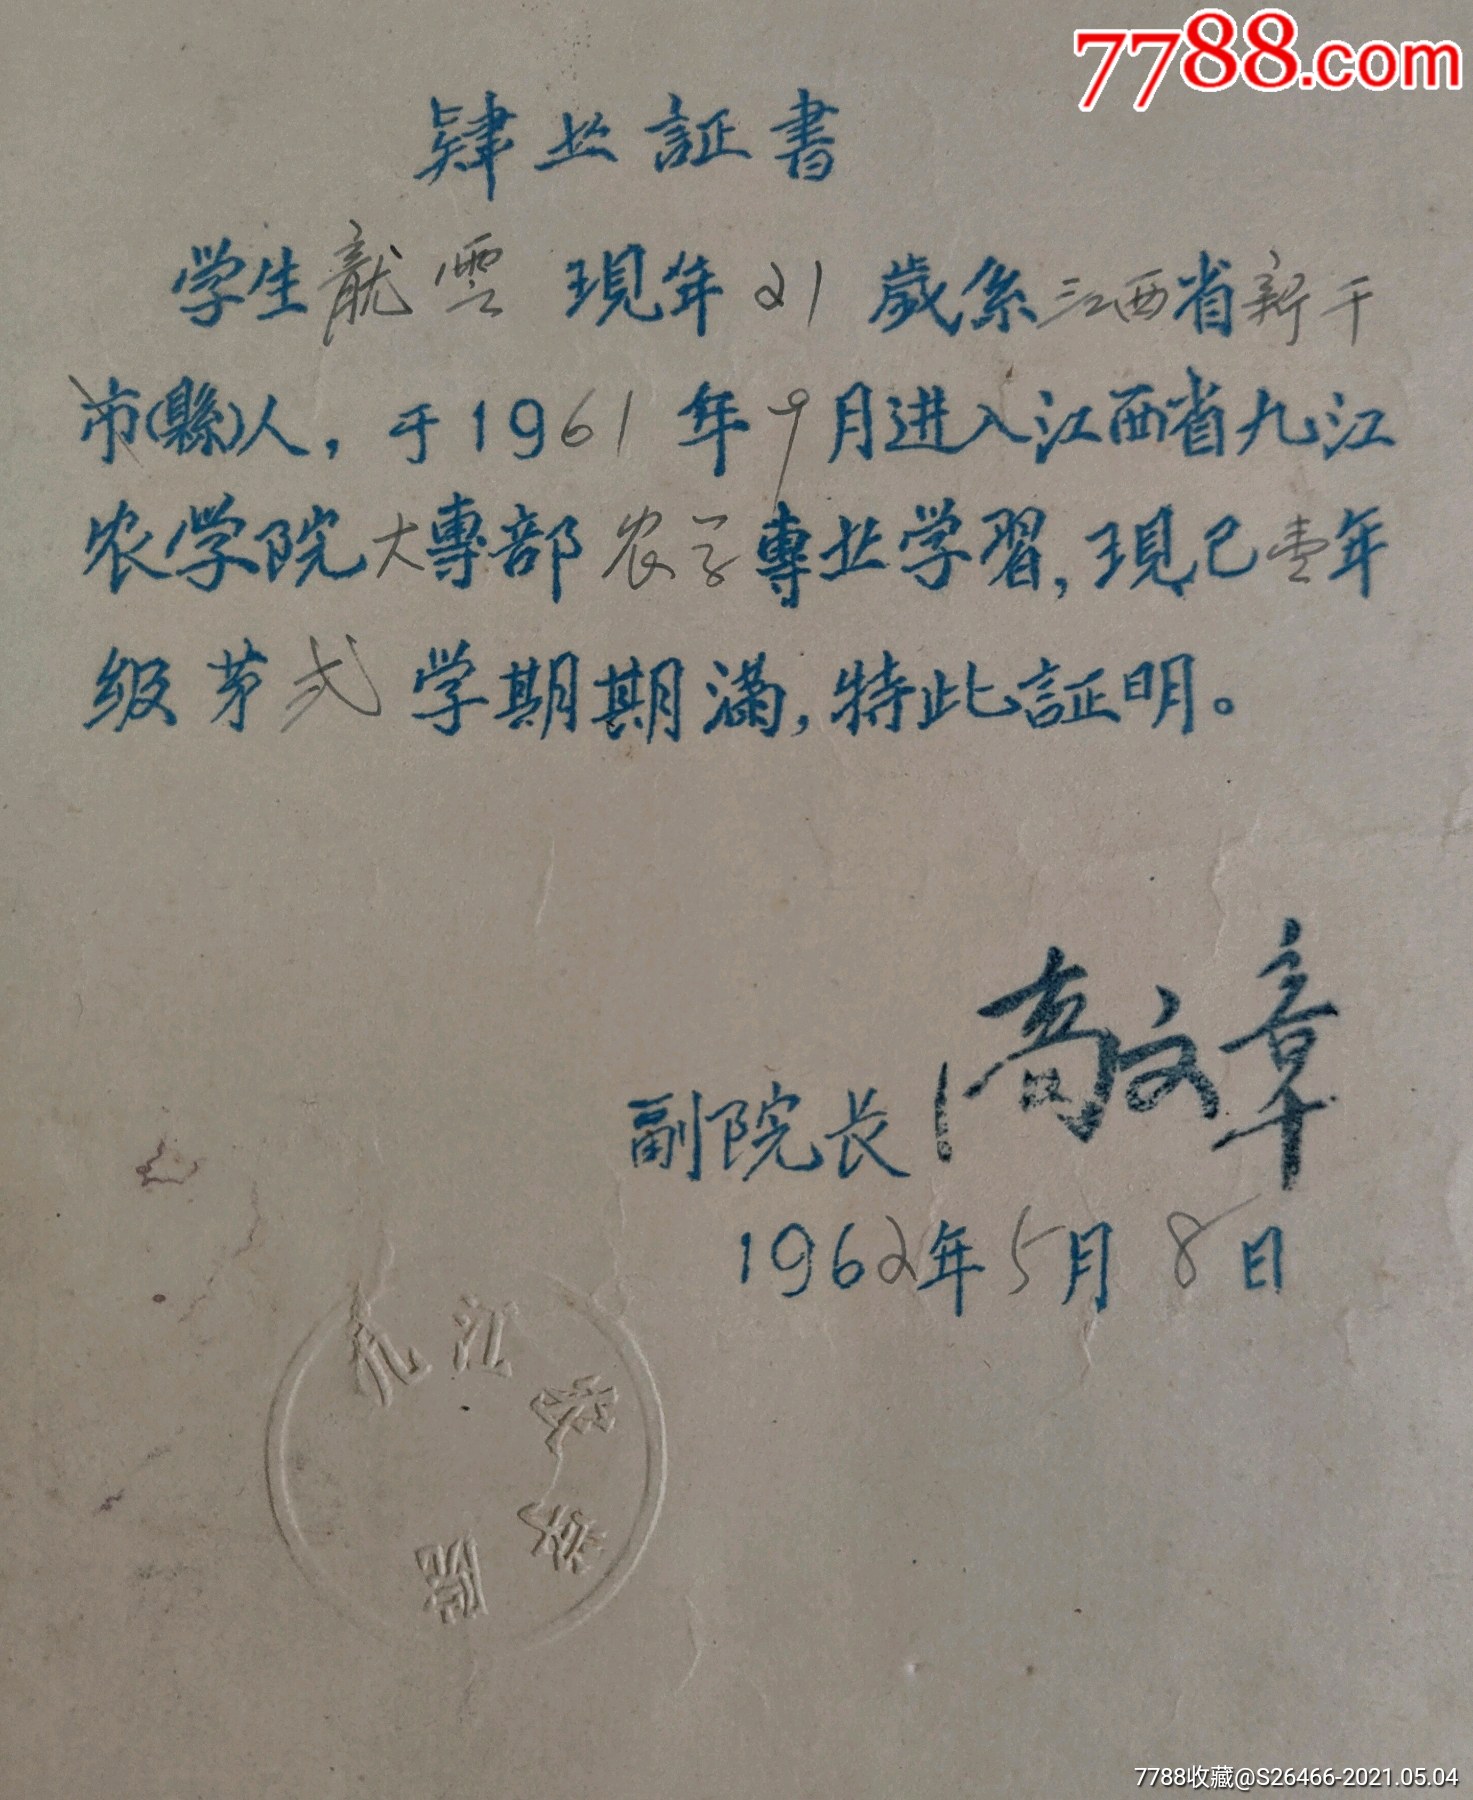 7788.com
肄业証書
学生龍雲 現年21歲系江西省新干
市(縣)人，于1961年9月进入江西省九江
农学院大專部农学專业学習，現已壹年
级第弍学期期满，特此証明。
副院长 高文章
1962年5月8日
九江农学院
7788收藏@S26466-2021.05.04